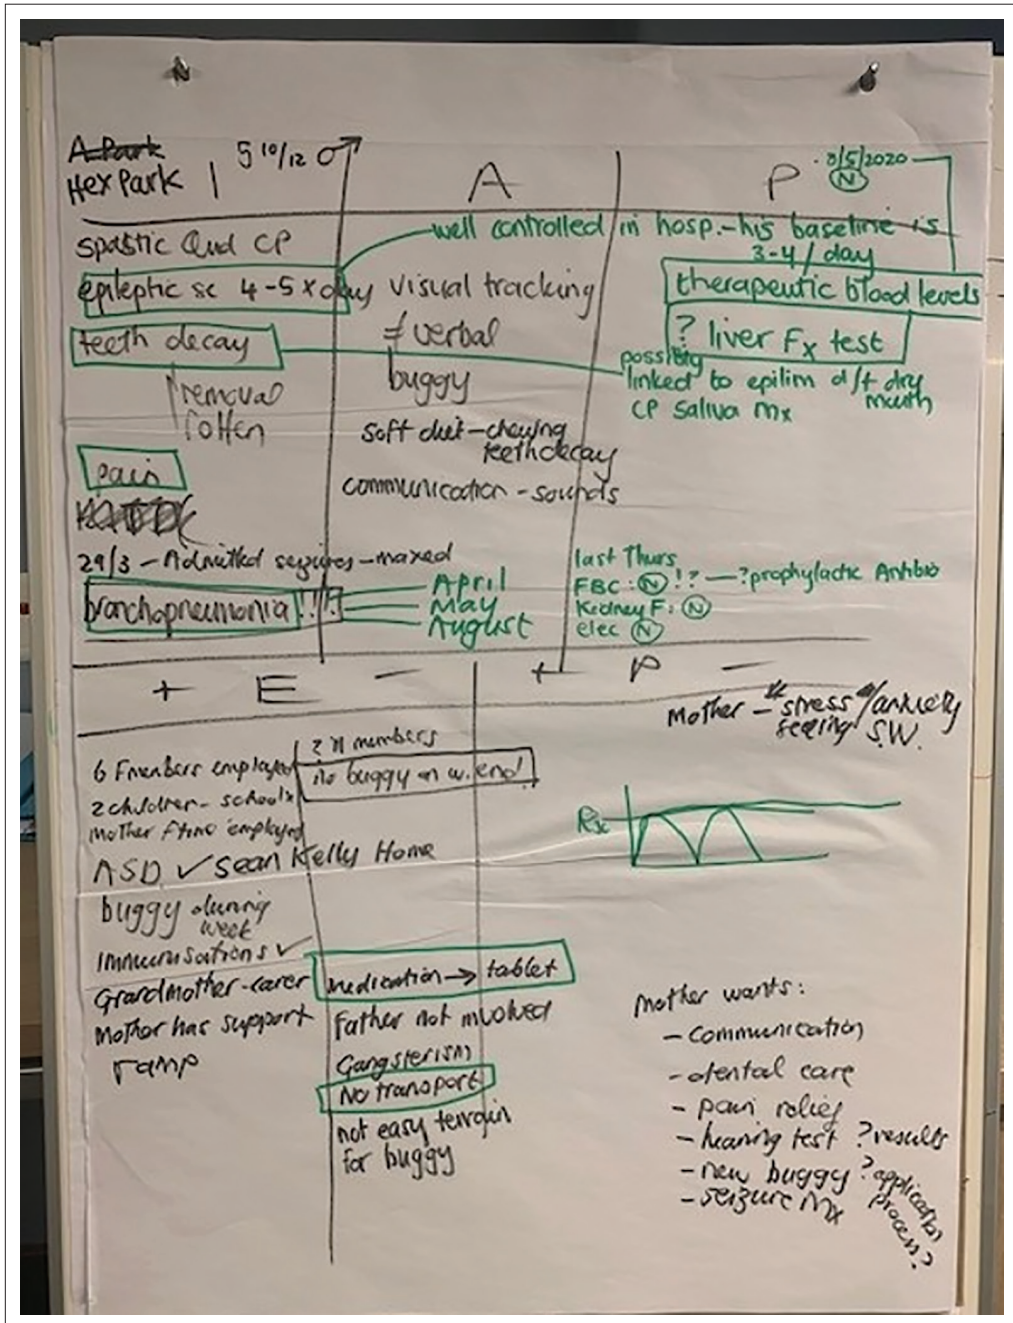 A Park
Hex Park
5 10/12 ♂
A
P
8/5/2020
N
spastic Qud CP
well controlled in hosp.-his baseline is
3-4/day
epileptic sc 4-5 x day
visual tracking
therapeutic blood levels
teeth decay
≠ verbal
? liver Fx test
buggy
possibly
linked to epilim d/t dry
mouth
CP saliva mx
removal
rotten
soft diet-chewing
teeth decay
pain
communication - sounds
29/3 - Admitted seizures-maxed
bronchopneumonia!!!
April
May
August
last Thurs
FBC: N !? - ?prophylactic Antibio
Kidney F: N
elec N
+ E -
+ P -
Mother - "stress"/anxiety
seeing S.W.
6 Fmembers employed
no buggy on w.end!
2 children - schools
Mother Ftime employed
Rx
ASD ✓ Sean Kelly Home
buggy during
week
Immunisations ✓
Grandmother-carer
medication → tablet
Mother has support
Father not involved
ramp
Gangsterism
No transport
not easy terrain
for buggy
mother wants:
- communication
- dental care
- pain relief
- hearing test ?results
- new buggy ?application
process?
- seizure Mx